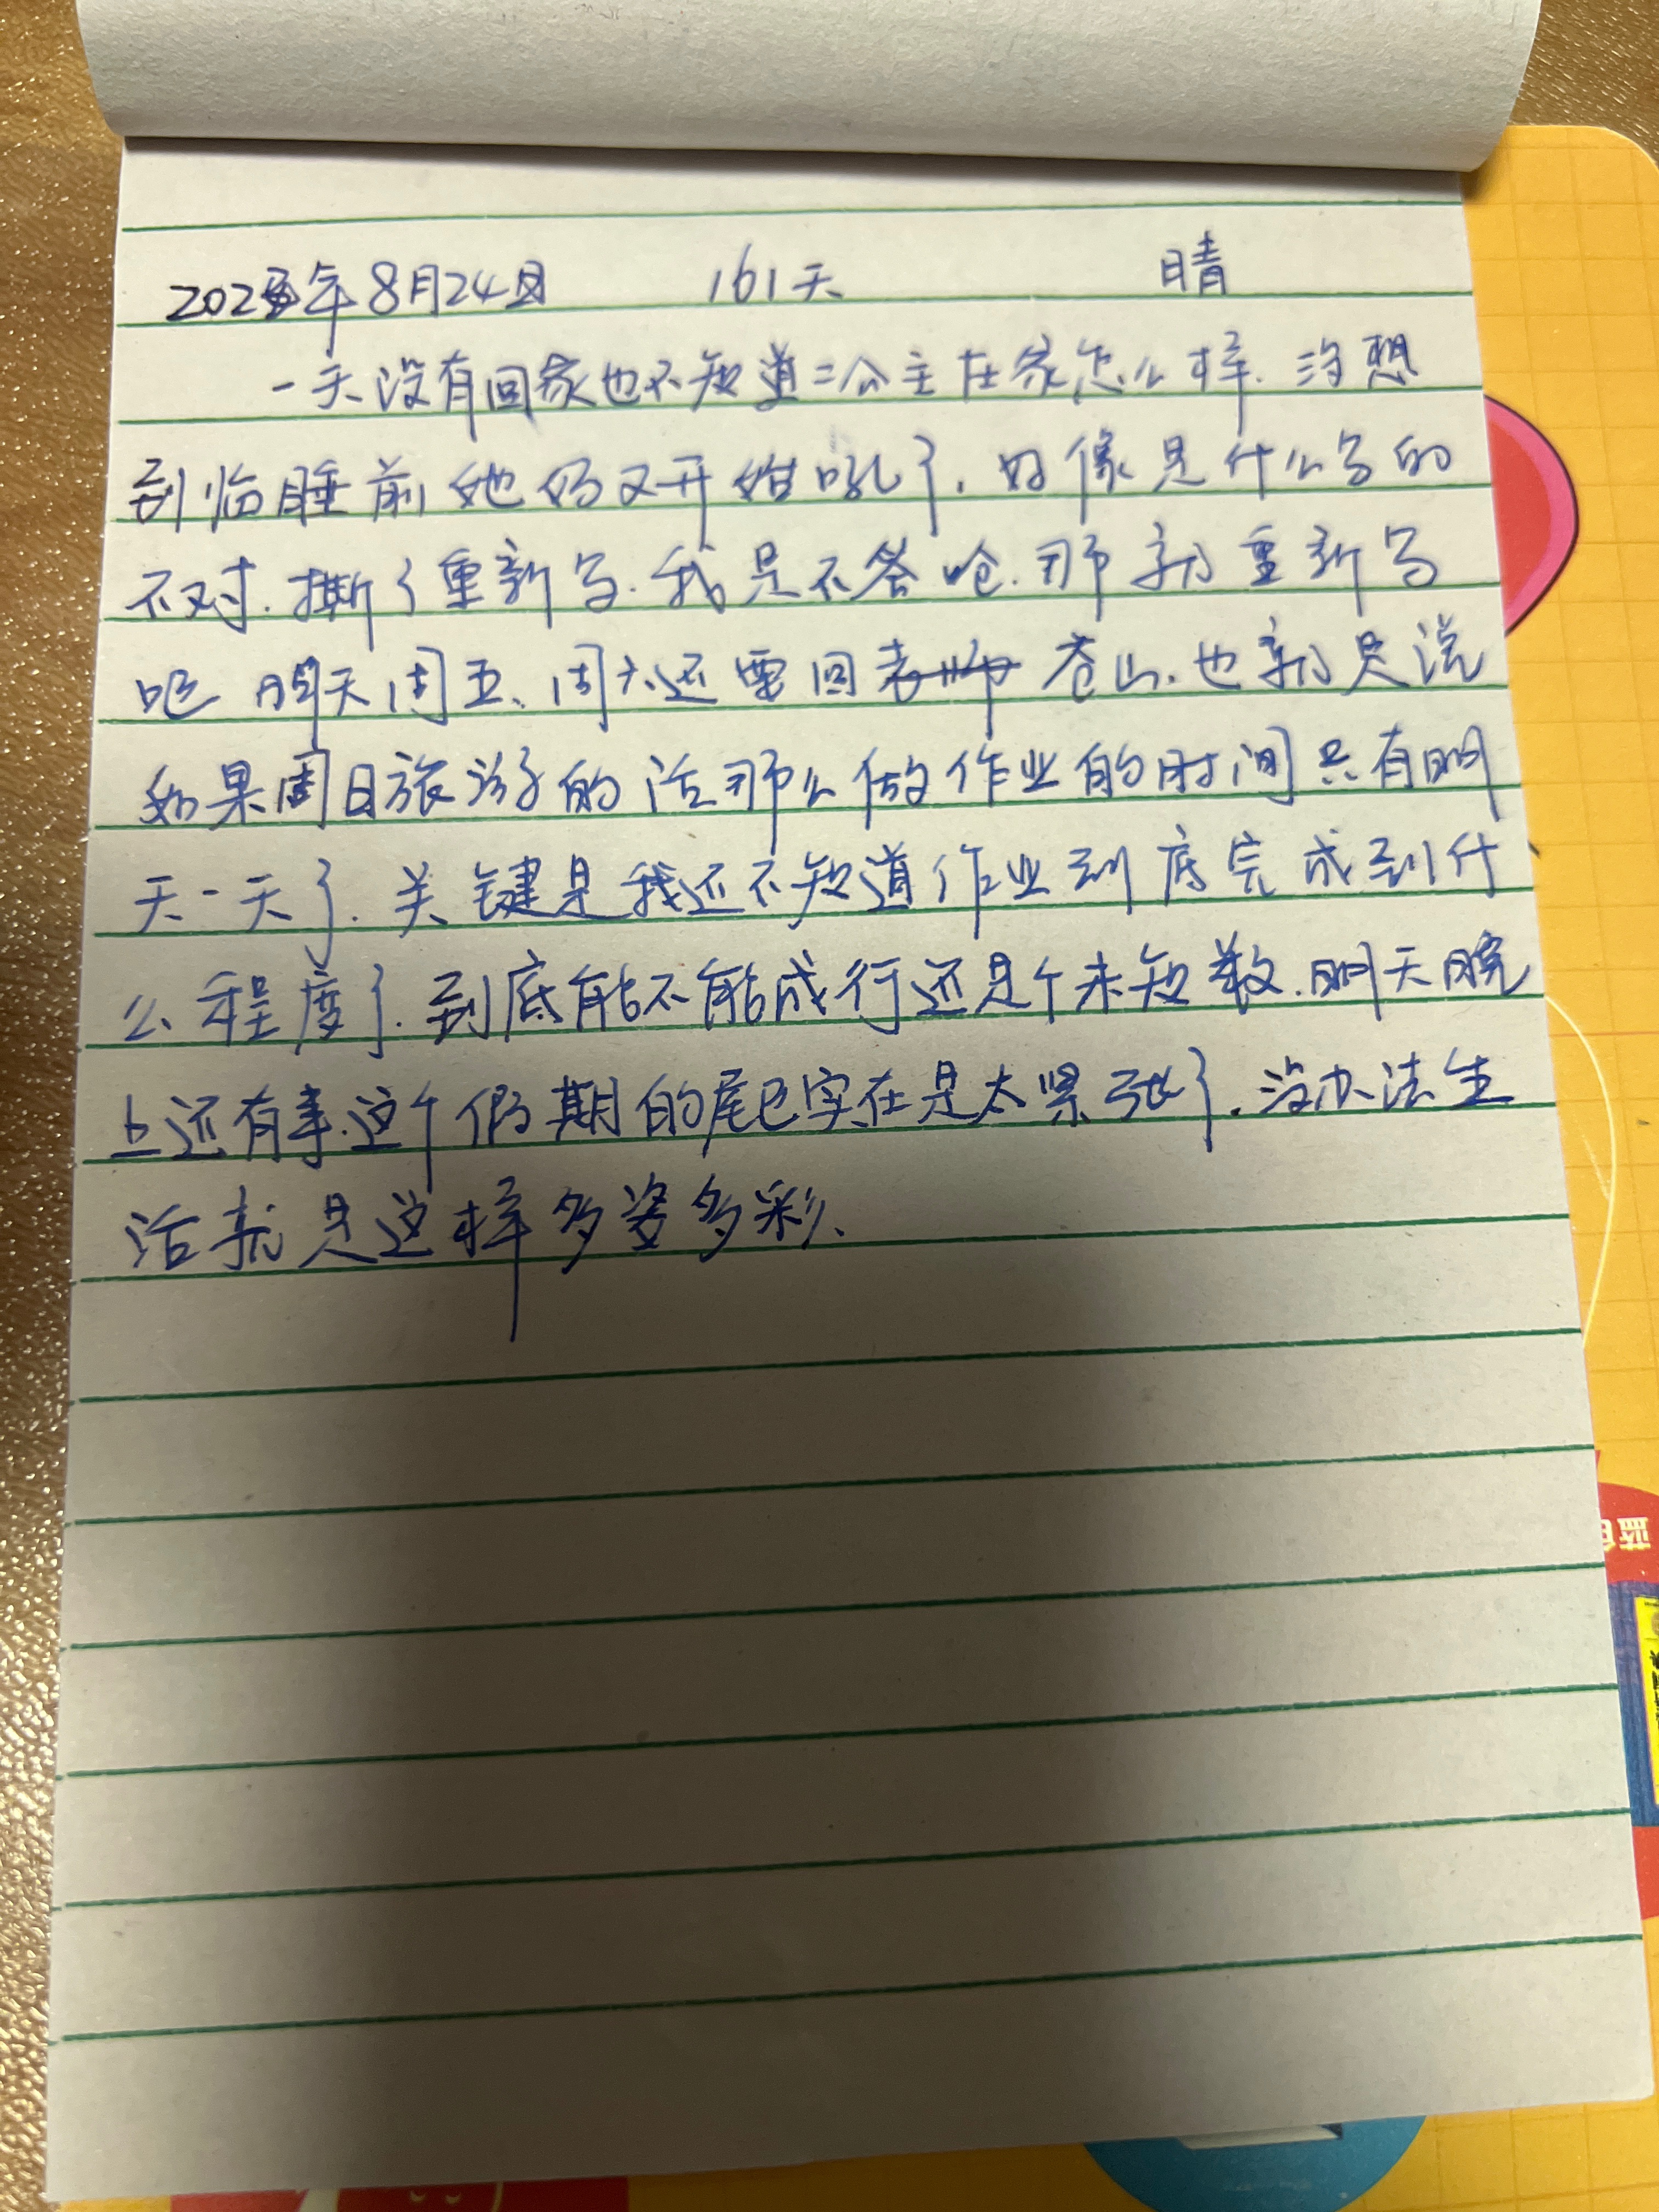 2023年8月24日 161天 晴
一天没有回家也不知道二公主在家怎么样.没想
到临睡前她妈又开始吼了.好像是什么写的
不对.撕了重新写.我是不答呛.那就重新写
吧 明天周五、周六还要回苍山.也就是说
如果周日旅游的话那么做作业的时间只有明
天一天了.关键是我还不知道作业到底完成到什
么程度了.到底能不能成行还是个未知数.明天晚
上还有事.这个假期的尾巴实在是太紧张了.没办法生
活就是这样多姿多彩、
蓝